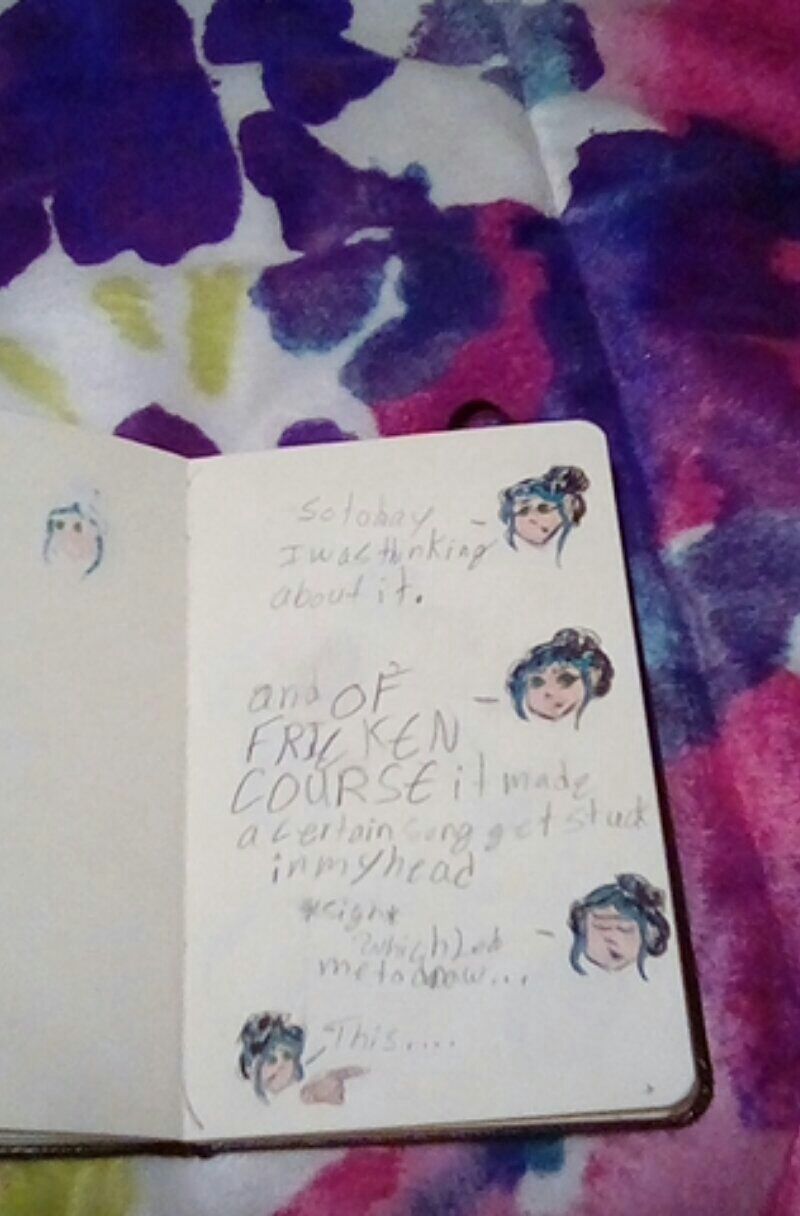 so today
I was thinking
about it.
and OF
FRICKEN
COURSE it made
a certain song get stuck
in my head
*sigh*
which led
me to draw...
This....